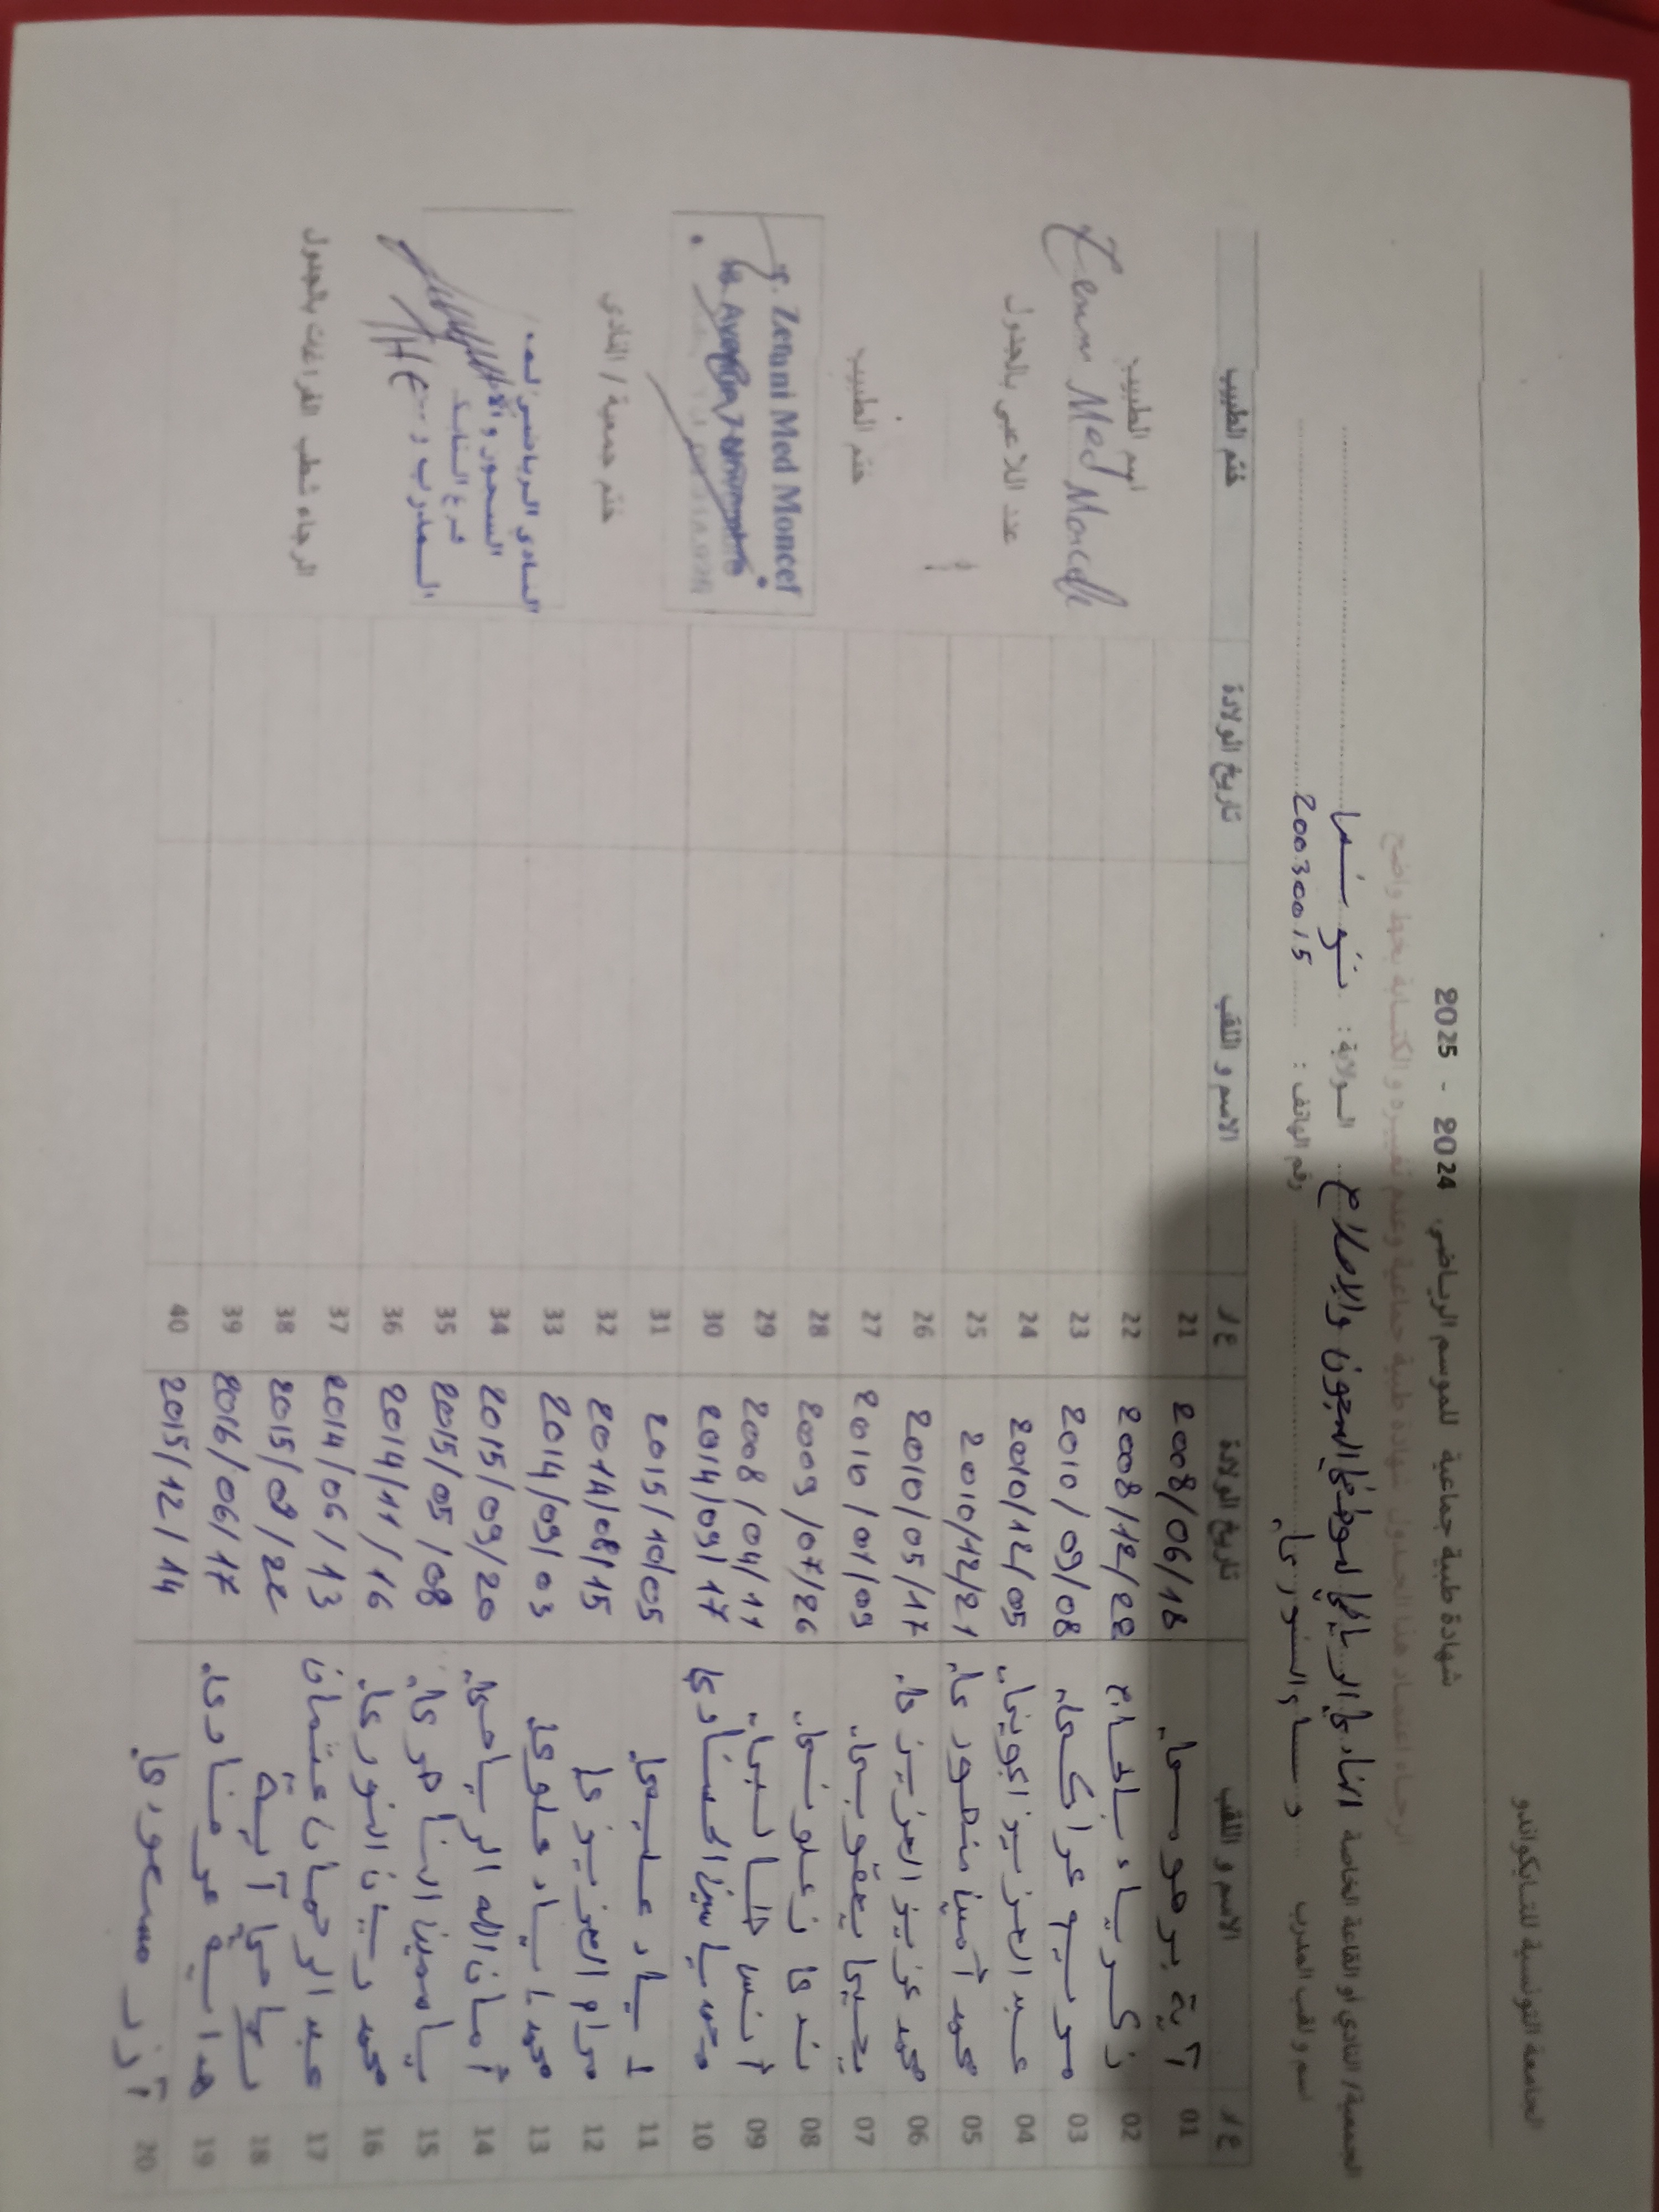 الجامعة التونسية للتايكواندو
شهادة طبية جماعية للموسم الرياضي 2024 - 2025
الرجاء اعتماد هذا الجدول شهادة طبية جماعية وعدم تغييره و الكتابة بخط واضح
الجمعية/ النادي أو القاعة الخاصة النادي الرياضي لموظفي السجون والإصلاح الولاية:
اسم و لقب المدرب رقم الهاتف: 20030015
ع/ر الاسم و اللقب تاريخ الولادة ع/ر الاسم و اللقب تاريخ الولادة ختم الطبيب
01 آية 2008/06/18 21
02 زكرياء 2008/12/22 22
03 2010/09/08 23
04 عبد العزيز الجويني 2010/12/05 24
05 محمد أمين منصوري 2010/12/21 25
06 محمد عزيز العزيزي 2010/05/17 26
07 يحيى يعقوبي 2010/01/09 27
08 ندى زغلوني 2009/07/26 28
09 أنس طالبي 2008/04/11 29
10 محمد ياسين الحسناوي 2014/09/17 30
11 إياد عليمي 2015/10/05 31
12 مرام العزيزي 2014/08/15 32
13 محمد إياد علوي 2014/09/03 33
14 أمان الله الرياحي 2015/09/20 34
15 ياسمين 2015/05/08 35
16 محمد ريان النوري 2014/11/16 36
17 عبد الرحمان عثمان 2014/06/13 37
18 رياحي آية 2015/08/22 38
19 2016/06/17 39
20 مسعودي 2015/12/14 40
اسم الطبيب
Zemni Med Moncef
عدد اللاعبي بالجدول
ختم الطبيب
Zemni Med Moncef
ختم جمعية / النادي
النادي الرياضي
السجون و
الرجاء شطب الفراغات بالجدول